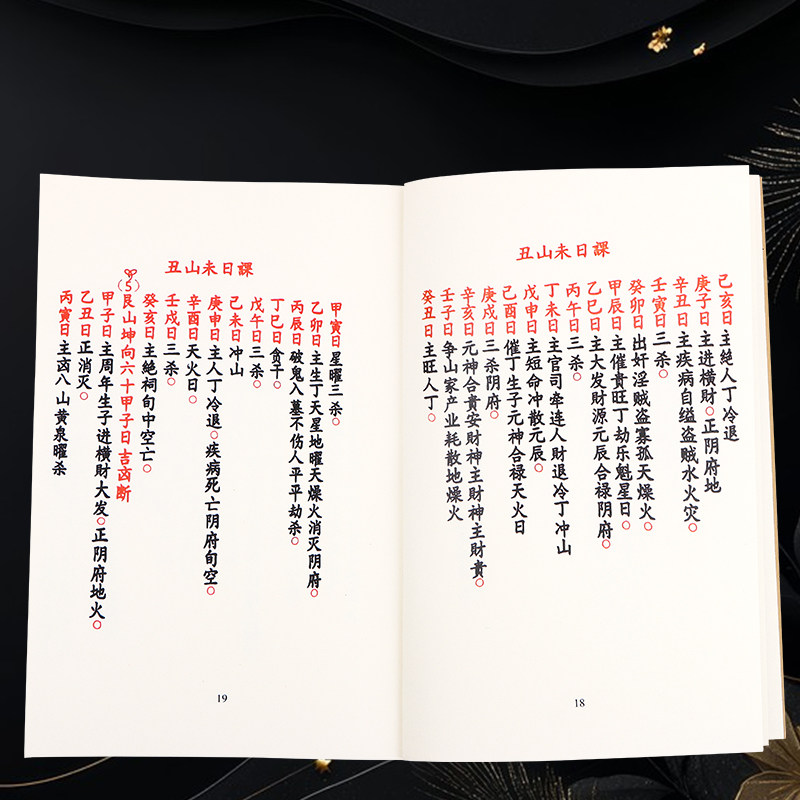 丑山未日課
己亥日主绝人丁冷退
庚子日主进横财。正阴府地
辛丑日主疾病自缢盗贼水火灾。
壬寅日三杀。
癸卯日出奸淫贼盗寡孤天燥火。
甲辰日主催貴旺丁劫乐魁星日。
乙巳日主大发财源元辰合禄阴府。
丙午日三杀。
丁未日主官司牵连人财退冷丁冲山
戊申日主短命冲散元辰。
己酉日催丁生子元神合禄天火日
庚戌日三杀阴府。
辛亥日元神合貴安财神主財神主財貴。
壬子日争山家产业耗散地燥火
癸丑日主旺人丁。
18
丑山未日課
甲寅日星曜三杀。
乙卯日主生丁天星地曜天燥火消灭阴府。
丙辰日破鬼入墓不伤人平平劫杀。
丁巳日食干。
戊午日三杀。
己未日冲山
庚申日主人丁冷退。疾病死亡阴府旬空。
辛酉日天火日。
壬戌日三杀。
癸亥日主绝祠旬中空亡。
(5)艮山坤向六十甲子日吉凶断
甲子日主周年生子进横財大发。正阴府地火。
乙丑日正消灭。
丙寅日主凶八山黄泉曜杀
19